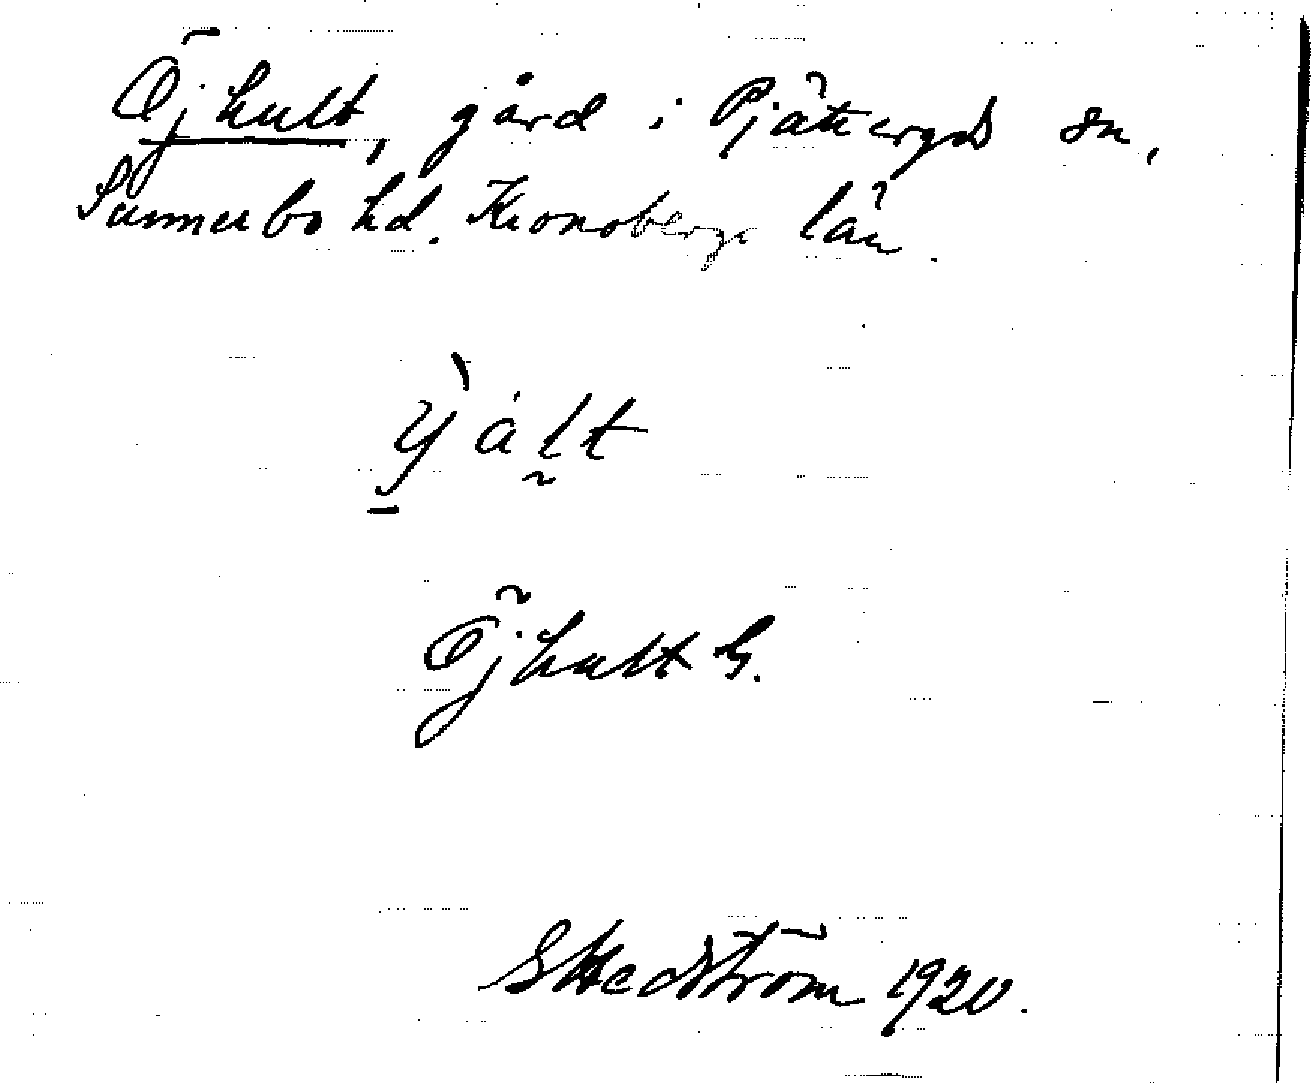 Öjhult, gård i Pjätteryds sn,
Sunnerbo hd. Kronobergs län.
Öjhult G.
S Hedström 1920.